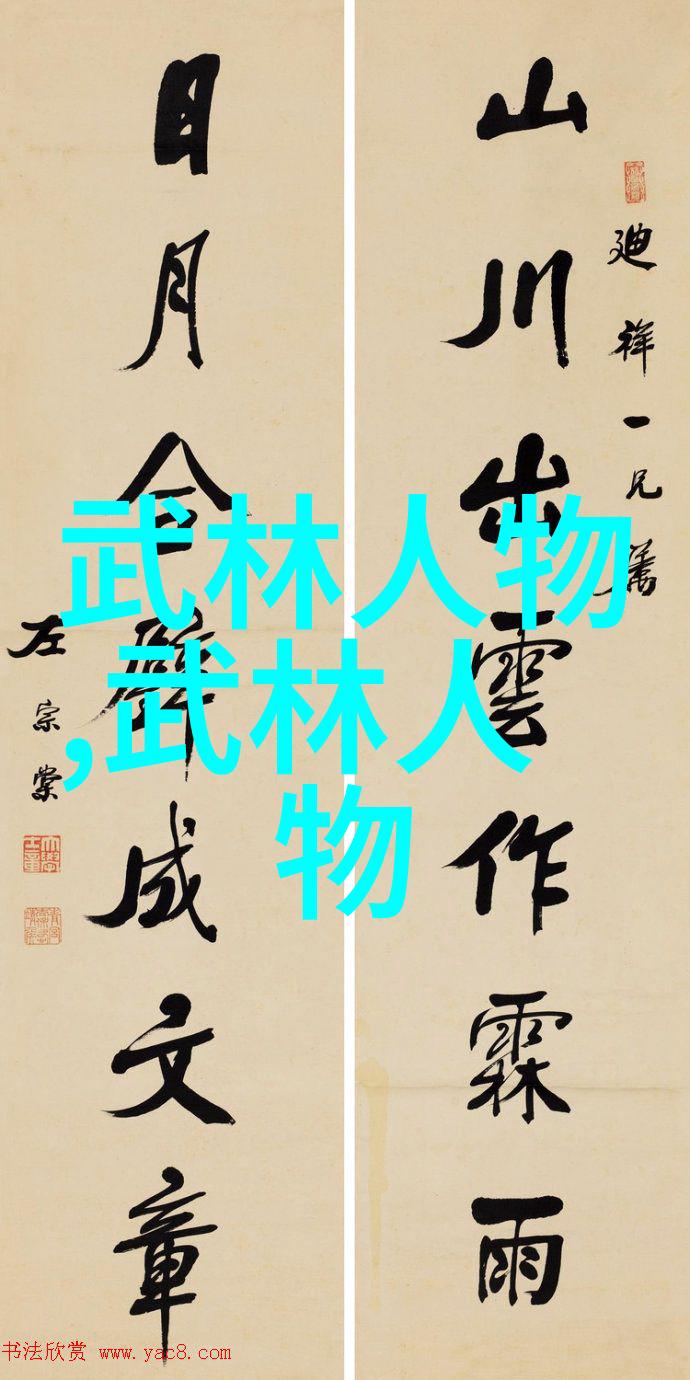 山川出雲作霖雨
廸祥一兄属
日月合璧成文章
左宗棠
武林人物
,武林人
物
书法欣赏 www.yac8.com